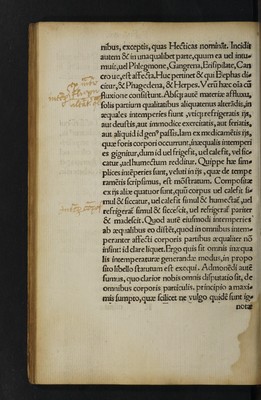 nibus, exceptis, quas Hecticas nominãt. Incidit
autem & in unaqualibet parte, quum ea uel intu-
muit, uel Phlegmone, Gangrena, Erisipilate, Can
cro ue, est affecta. Huc pertinet & qui Elephas di-
citur, & Phagedena, & Herpes. Verũ hæc oĩa cũ
fluxione consistunt. Absq; autẽ materiæ affluxu,
solis partium qualitatibus aliquatenus alteratis, in
æquales intemperies fiunt, utique refrigeratis
aut deustis, aut immodice exercitatis, aut feriatis,
aut aliquid id genꝰ passis. Iam ex medicamẽtis
quæ foris corpori occurrunt, inæqualis intemperi
es gignitur, dum id uel frigesit, uel calesit, uel sic-
catur, uel humectum redditur. Quippe hæ sim-
plices intẽperies sunt, veluti in ijs, quæ de tempe
ramẽtis scripsimus, est mõstratum. Compositæ
ex ijs aliæ quatuor sunt, quũ corpus uel calesit si-
mul & siccatur, uel calesit simul & humectaꝰ, uel
refrigeraꝰ simul & siccescit, uel refrigeraꝰ pariter
& madescit. Quod autẽ eiusmodi intemperies
ab æqualibus eo distẽt, quod in omnibus intem-
peranter affecti corporis partibus æqualiter nõ
insint: id clare liquet. Ergo quis sit omnis inæqua
lis intemperaturæ generandæ modus, in propo
sito libello statutum est exequi. Admonẽdi autẽ
sumus, quo clarior nobis omnis disputatio sit, de
omnibus corporis particulis. principio a maxi-
mis sumpto, quæ scilicet ne vulgo quidẽ sunt ig-
notæ